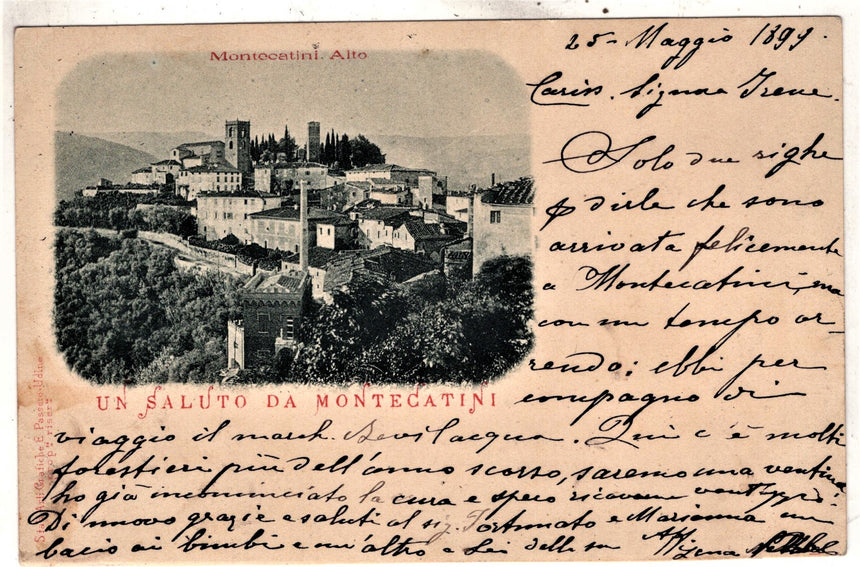 Montecatini. Alto
25 - Maggio 1899
Cariss. Signora Irene.
Solo due righe
p dirle che sono
arrivata felicemente
a Montecatini, ma
con un tempo or-
rendo; ebbi per
compagno di
UN SALUTO DA MONTECATINI
viaggio il march. Bevilacqua. Qui c'è molti
forestieri più dell'anno scorso, saremo una ventina
ho già incominciato la cura e spero ricavare
Di nuovo grazie e saluti al sig. Fortunato e Marianna un
bacio ai bimbi e un'altro a Lei dalla sua